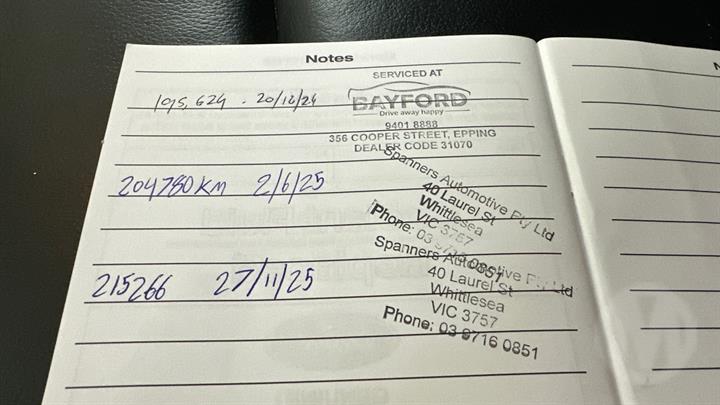 Notes
SERVICED AT
195,624 . 20/12/24
BAYFORD
Drive away happy
9401 8888
356 COOPER STREET, EPPING
DEALER CODE 31070
204780KM 2/6/25
Spanners Automotive Pty Ltd
40 Laurel St
Whittlesea
VIC 3757
Phone: 03 9716 0851
215266 27/11/25
Spanners Automotive Pty Ltd
40 Laurel St
Whittlesea
VIC 3757
Phone: 03 9716 0851